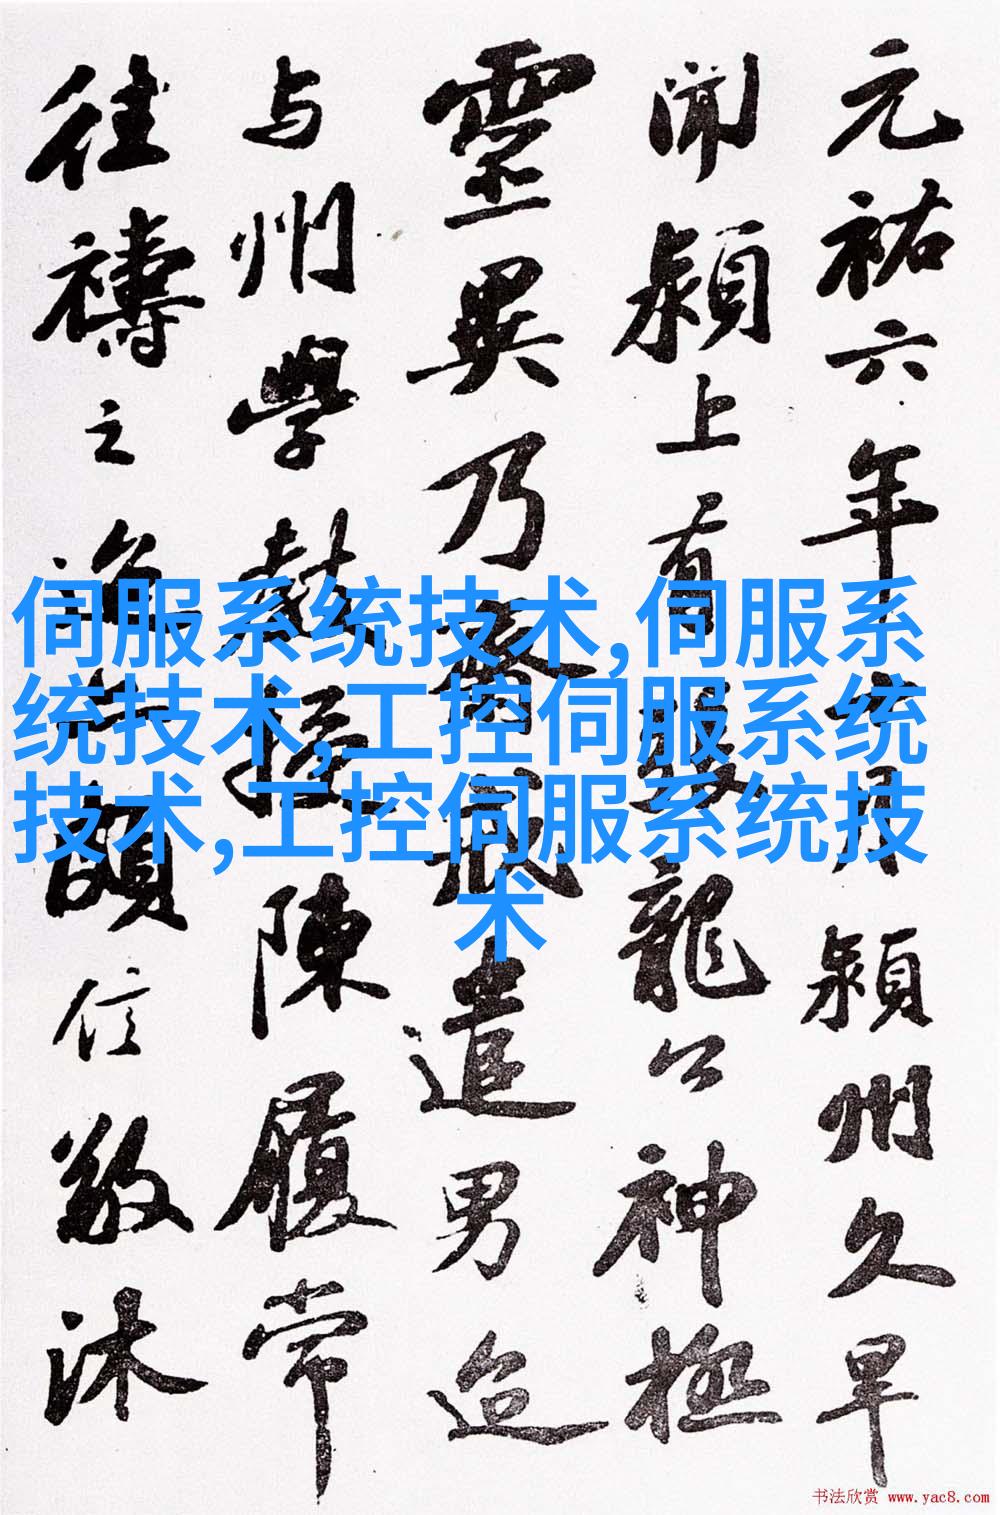 元祐六年十月潁州久旱
聞潁上有張龍公神極
靈異乃齋戒遣男迨
与州學教授陳履常
往禱之迨亦頗信敬沐
伺服系统技术,伺服系
统技术,工控伺服系统
技术,工控伺服系统技
术
书法欣赏 www.yac8.com